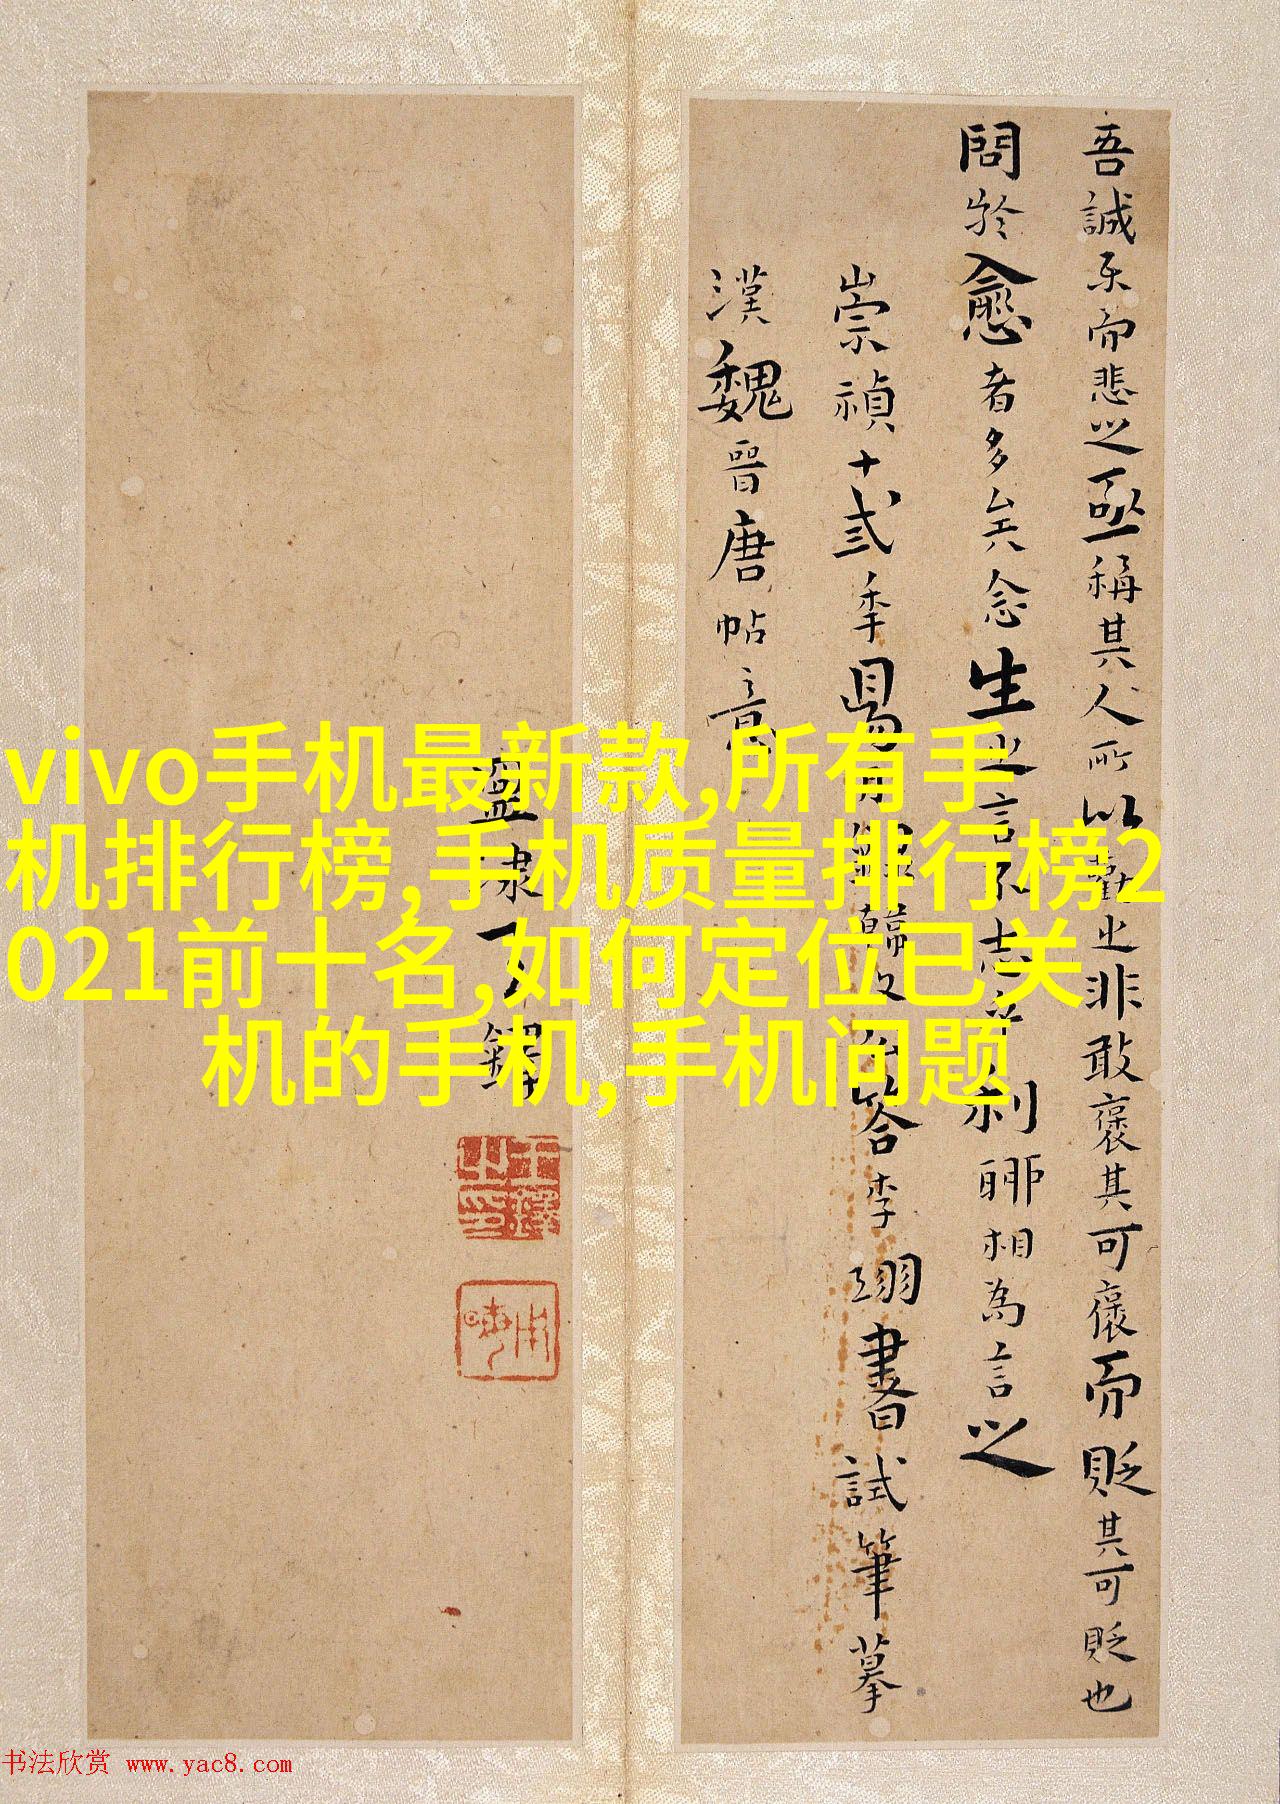 吾誠樂而悲之亟稱其人所以勸之非敢褒其可褒而貶其可貶也
問於愈者多矣念生之言不志乎利聊相為言之
崇禎十弍季昜月錄韓文公答李翊書試筆摹
漢魏晉唐帖意
王鐸
王鐸之印
vivo手机最新款,所有手
机排行榜,手机质量排行榜2
021前十名,如何定位已关
机的手机,手机问题
书法欣赏 www.yac8.com